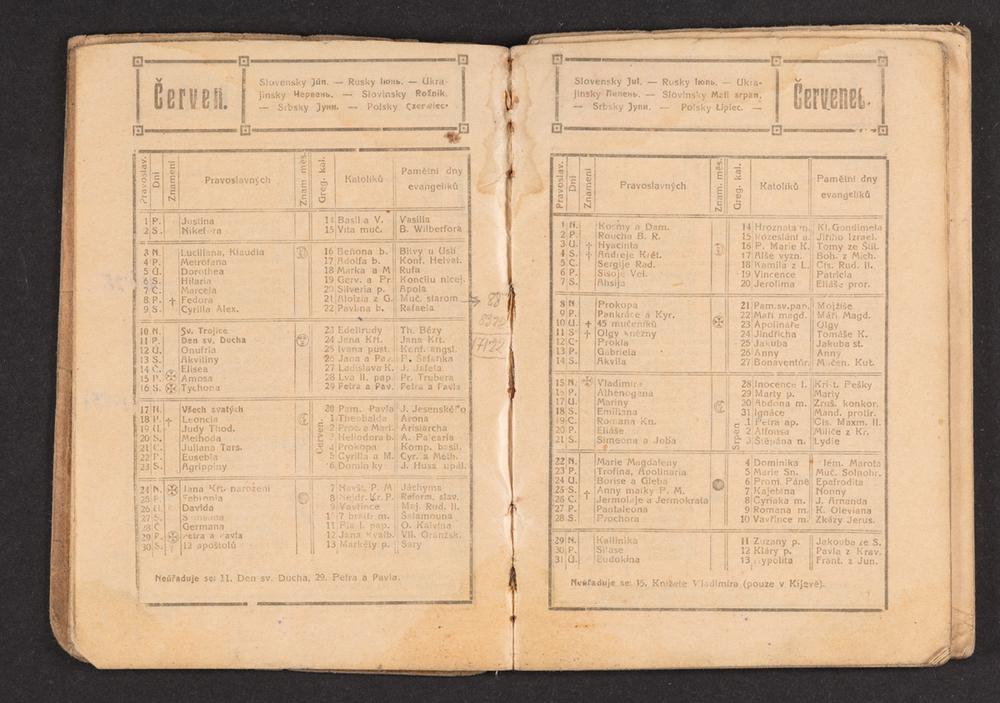 Červen.
Slovensky Jún. — Rusky Іюнь. — Ukra-
jinsky Червень. — Slovinsky Rožnik.
— Srbsky Јуни. — Polsky Czerwiec.
Pravoslav. Dni Znamení Pravoslavných Znam. měs. Greg. kal. Katolíků Pamětní dny evangeliků
1 P. Justina 14 Basil a V. Vasilia
2 S. Nikefora 15 Víta muč. B. Wilberfora
3 N. Luciliana, Klaudia 16 Benona b. Bitvy u Ústí
4 P. Metrofana 17 Adolfa b. Konf. Helvet.
5 Ú. Dorothea 18 Marka a M Rufa
6 S. Hilaria 19 Gerv. a Pr Konciliu nicej.
7 Č. Marcela 20 Silveria p. Apola
8 P. † Fedora 21 Aloizia z G. Muč. starom
9 S. Cyrilla Alex. 22 Pavlina b. Rafaela
10 N. Sv. Trojice 23 Edeltrudy Th. Bézy
11 P. Den sv. Ducha 24 Jana Křt. Jana Křt.
12 Ú. Onufria 25 Ivana pust. Konf. angsl.
13 S. Akviliny 26 Jana a Pav.
14 Č. Elisea 27 Ladislava K. J. Jafeta
15 P. Amosa 28 Lva II. pap. Pr. Trubera
16 S. Tychona 29 Petra a Pav. Petra a Pavla
17 N. Všech svatých 20 Pam. Pavla J. Jesenského
18 P. † Leoncia Červen. 1 Theobalda Arona
19 Ú. Judy Thod. 2 Aristarcha
20 S. Methoda 3 Heliodora b. A. Palearia
21 Č. Juliana Tars. 4 Prokopa Komp. basil.
22 P. Eusebia 5 Cyrilla a M. Cyr. a Meth.
23 S. Agrippiny 6 Dominiky J. Husa upál.
24 N. Jana Křt. narození 7 Navšt. P. M Jáchyma
25 P. Febronia 8 Nejdr. Kr. P. Reform. slav.
26 Ú. Davida 9 Vavřince Maj. Rud. II.
27 S. 10 7 bratří m. Šalamouna
28 Č Germana 11 Pia I. pap. O. Kalvína
29 P. Petra a Pavla 12 Jana Gvalb. Vil. Oranžsk.
30 S. 12 apoštolů 13 Markéty p. Sáry
Neúřaduje se: 11. Den sv. Ducha, 29. Petra a Pavla.
88
8320
17122
Slovensky Júl. — Rusky Іюль. — Ukra-
jinsky Липень. — Slovinsky Mali srpan.
— Srbsky Јули. — Polsky Lipiec. —
Červenec.
Pravoslav. Dni Znamení Pravoslavných Znam. měs. Greg. kal. Katolíků Pamětní dny evangeliků
1 N. Kosmy a Dam. 14 Hroznata m. Kl. Gondimela
2 P. Roucha B. R. 15 Rozeslání a. Jiřího Izrael.
3 Ú. † Hyacinta 16 P. Marie K. Tomy ze Štít.
4 S. † Andreje Krét. 17 Alše vyzn. Boh. z Mich.
5 Č. Sergije Rad. 18 Kamila z L. Cís. Rud. II.
6 P. Sisoje Vel. 19 Vincence Patricia
7 S. Ahsija 20 Jerolima Eliáše pror.
8 N Prokopa 21 Pam.sv.pap. Mojžíše
9 P. Pankráce a Kyr. 22 Maří magd. Máří Magd.
10 Ú. † 45 mučeníků 23 Apolináře Olgy
11 S † Olgy kněžny 24 Jindřicha Tomáše K.
12 Č. Prokla 25 Jakuba Jakuba st.
13 P. Gabriela 26 Anny Anny
14 S. Akvila 27 Bonaventúr. Mučen. Kut.
15 N. Vladimíra 28 Inocence I. Kríšt. Pešky
16 P. Athenogena 29 Marty p. Marty
17 Ú. Mariny 30 Abdona m. Zruš. konkor.
18 S. Emiliana 31 Ignáce Mand. protir.
19 Č. Romana Kn. Srpen 1 Petra ap. Cís. Maxm. II.
20 P. Eliáše 2 Alfonsa Milíče z Kr.
21 S. Simeona a Joba 3 Štěpána n. Lydie
22 N. Marie Magdaleny 4 Dominika Klém. Marota
23 P. Trofina, Apolinaria 5 Marie Sn. Muč. Solnohr.
24 Ú. Borise a Gleba 6 Prom. Páně Epafrodita
25 S. † Anny matky P. M. 7 Kajetána Nonny
26 Č. Jermolaje a Jermokrata 8 Cyriaka m. J. Arnanda
27 P. Pantaleona 9 Romana m. K. Oleviana
28 S. Prochora 10 Vavřince m. Zkázy Jerus.
29 N. Kallinika 11 Zuzany p. Jakouba ze S.
30 P. Silase 12 Kláry p. Pavla z Krav.
31 Ú. Eudokina 13 Hypolita Frant. z Jun.
Neúřaduje se: 15. Knížete Vladimíra (pouze v Kijevě).